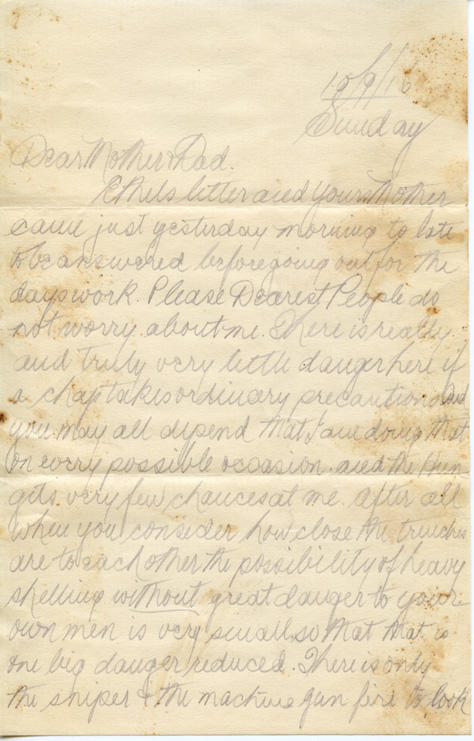 10/9/16
Sunday
Dear Mother & Dad.
Ethels letter and yours Mother
came just yesterday morning to late
to be answered before going out for the
days work. Please Dearest People do
not worry about me. There is really
and truly very little danger here if
a chap takes ordinary precautions and
you may all depend that I am doing that
on every possible occasion. and the Hun
gets very few chances at me. After all
when you consider how close the trenches
are to each other the possibility of heavy
shelling without great danger to your
own men is very small so that that is
one big danger reduced. There is only
the sniper & the machine gun fire to look